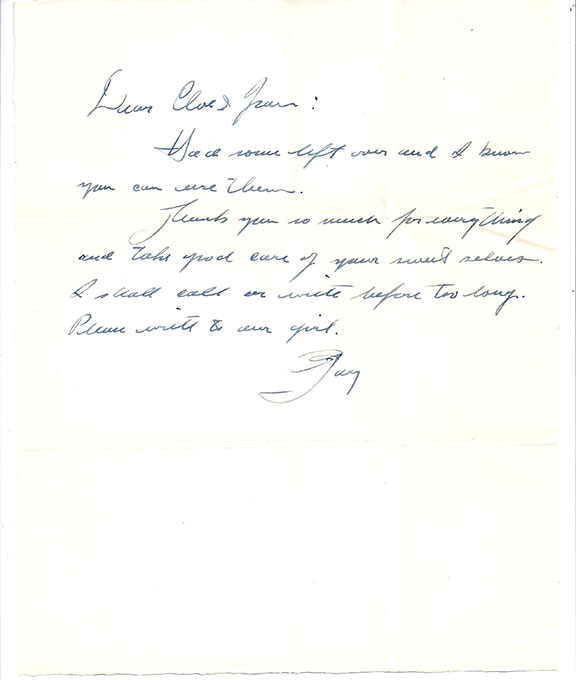 Dear Clo & Fran:
Had some left over and I know
you can use them.
Thanks you so much for everything
and take good care of your sweet selves.
I shall call or write before too long.
Please write to our girl.
Guy